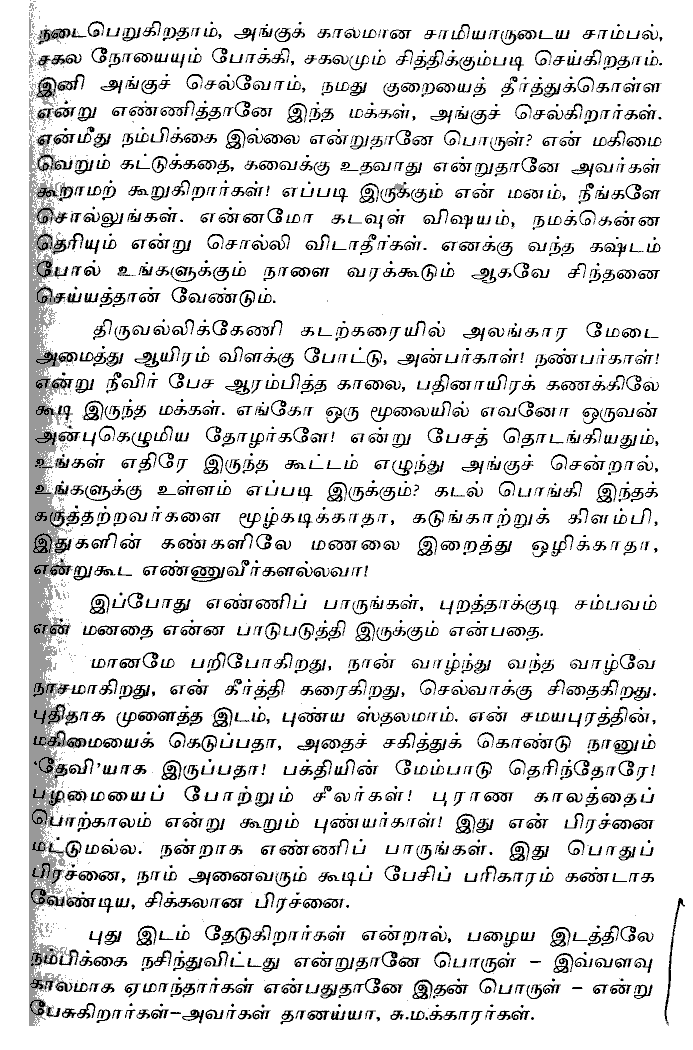 நடைபெறுகிறதாம், அங்குக் காலமான சாமியாருடைய சாம்பல்,
சகல நோயையும் போக்கி, சகலமும் சித்திக்கும்படி செய்கிறதாம்.
இனி அங்குச் செல்வோம், நமது குறையைத் தீர்த்துக்கொள்ள
என்று எண்ணித்தானே இந்த மக்கள், அங்குச் செல்கிறார்கள்.
என்மீது நம்பிக்கை இல்லை என்றுதானே பொருள்? என் மகிமை
வெறும் கட்டுக்கதை, கவைக்கு உதவாது என்றுதானே அவர்கள்
கூறாமற் கூறுகிறார்கள்! எப்படி இருக்கும் என் மனம், நீங்களே
சொல்லுங்கள். என்னமோ கடவுள் விஷயம், நமக்கென்ன
தெரியும் என்று சொல்லி விடாதீர்கள். எனக்கு வந்த கஷ்டம்
போல் உங்களுக்கும் நாளை வரக்கூடும் ஆகவே சிந்தனை
செய்யத்தான் வேண்டும்.
திருவல்லிக்கேணி கடற்கரையில் அலங்கார மேடை
அமைத்து ஆயிரம் விளக்கு போட்டு, அன்பர்காள்! நண்பர்காள்!
என்று நீவிர் பேச ஆரம்பித்த காலை, பதினாயிரக் கணக்கிலே
கூடி இருந்த மக்கள். எங்கோ ஒரு மூலையில் எவனோ ஒருவன்
அன்புகெழுமிய தோழர்களே! என்று பேசத் தொடங்கியதும்,
உங்கள் எதிரே இருந்த கூட்டம் எழுந்து அங்குச் சென்றால்,
உங்களுக்கு உள்ளம் எப்படி இருக்கும்? கடல் பொங்கி இந்தக்
கருத்தற்றவர்களை மூழ்கடிக்காதா, கடுங்காற்றுக் கிளம்பி,
இதுகளின் கண்களிலே மணலை இறைத்து ஒழிக்காதா,
என்றுகூட எண்ணுவீர்களல்லவா!
இப்போது எண்ணிப் பாருங்கள், புறத்தாக்குடி சம்பவம்
என் மனதை என்ன பாடுபடுத்தி இருக்கும் என்பதை.
மானமே பறிபோகிறது, நான் வாழ்ந்து வந்த வாழ்வே
நாசமாகிறது, என் கீர்த்தி கரைகிறது, செல்வாக்கு சிதைகிறது.
புதிதாக முளைத்த இடம், புண்ய ஸ்தலமாம். என் சமயபுரத்தின்,
மகிமையைக் கெடுப்பதா, அதைச் சகித்துக் கொண்டு நானும்
‘தேவி’யாக இருப்பதா! பக்தியின் மேம்பாடு தெரிந்தோரே!
பழமையைப் போற்றும் சீலர்கள்! புராண காலத்தைப்
பொற்காலம் என்று கூறும் புண்யர்காள்! இது என் பிரச்னை
மட்டுமல்ல. நன்றாக எண்ணிப் பாருங்கள். இது பொதுப்
பிரச்னை, நாம் அனைவரும் கூடிப் பேசிப் பரிகாரம் கண்டாக
வேண்டிய, சிக்கலான பிரச்னை.
புது இடம் தேடுகிறார்கள் என்றால், பழைய இடத்திலே
நம்பிக்கை நசிந்துவிட்டது என்றுதானே பொருள் – இவ்வளவு
காலமாக ஏமாந்தார்கள் என்பதுதானே இதன் பொருள் – என்று
பேசுகிறார்கள்–அவர்கள் தானய்யா, சு.ம.க்காரர்கள்.